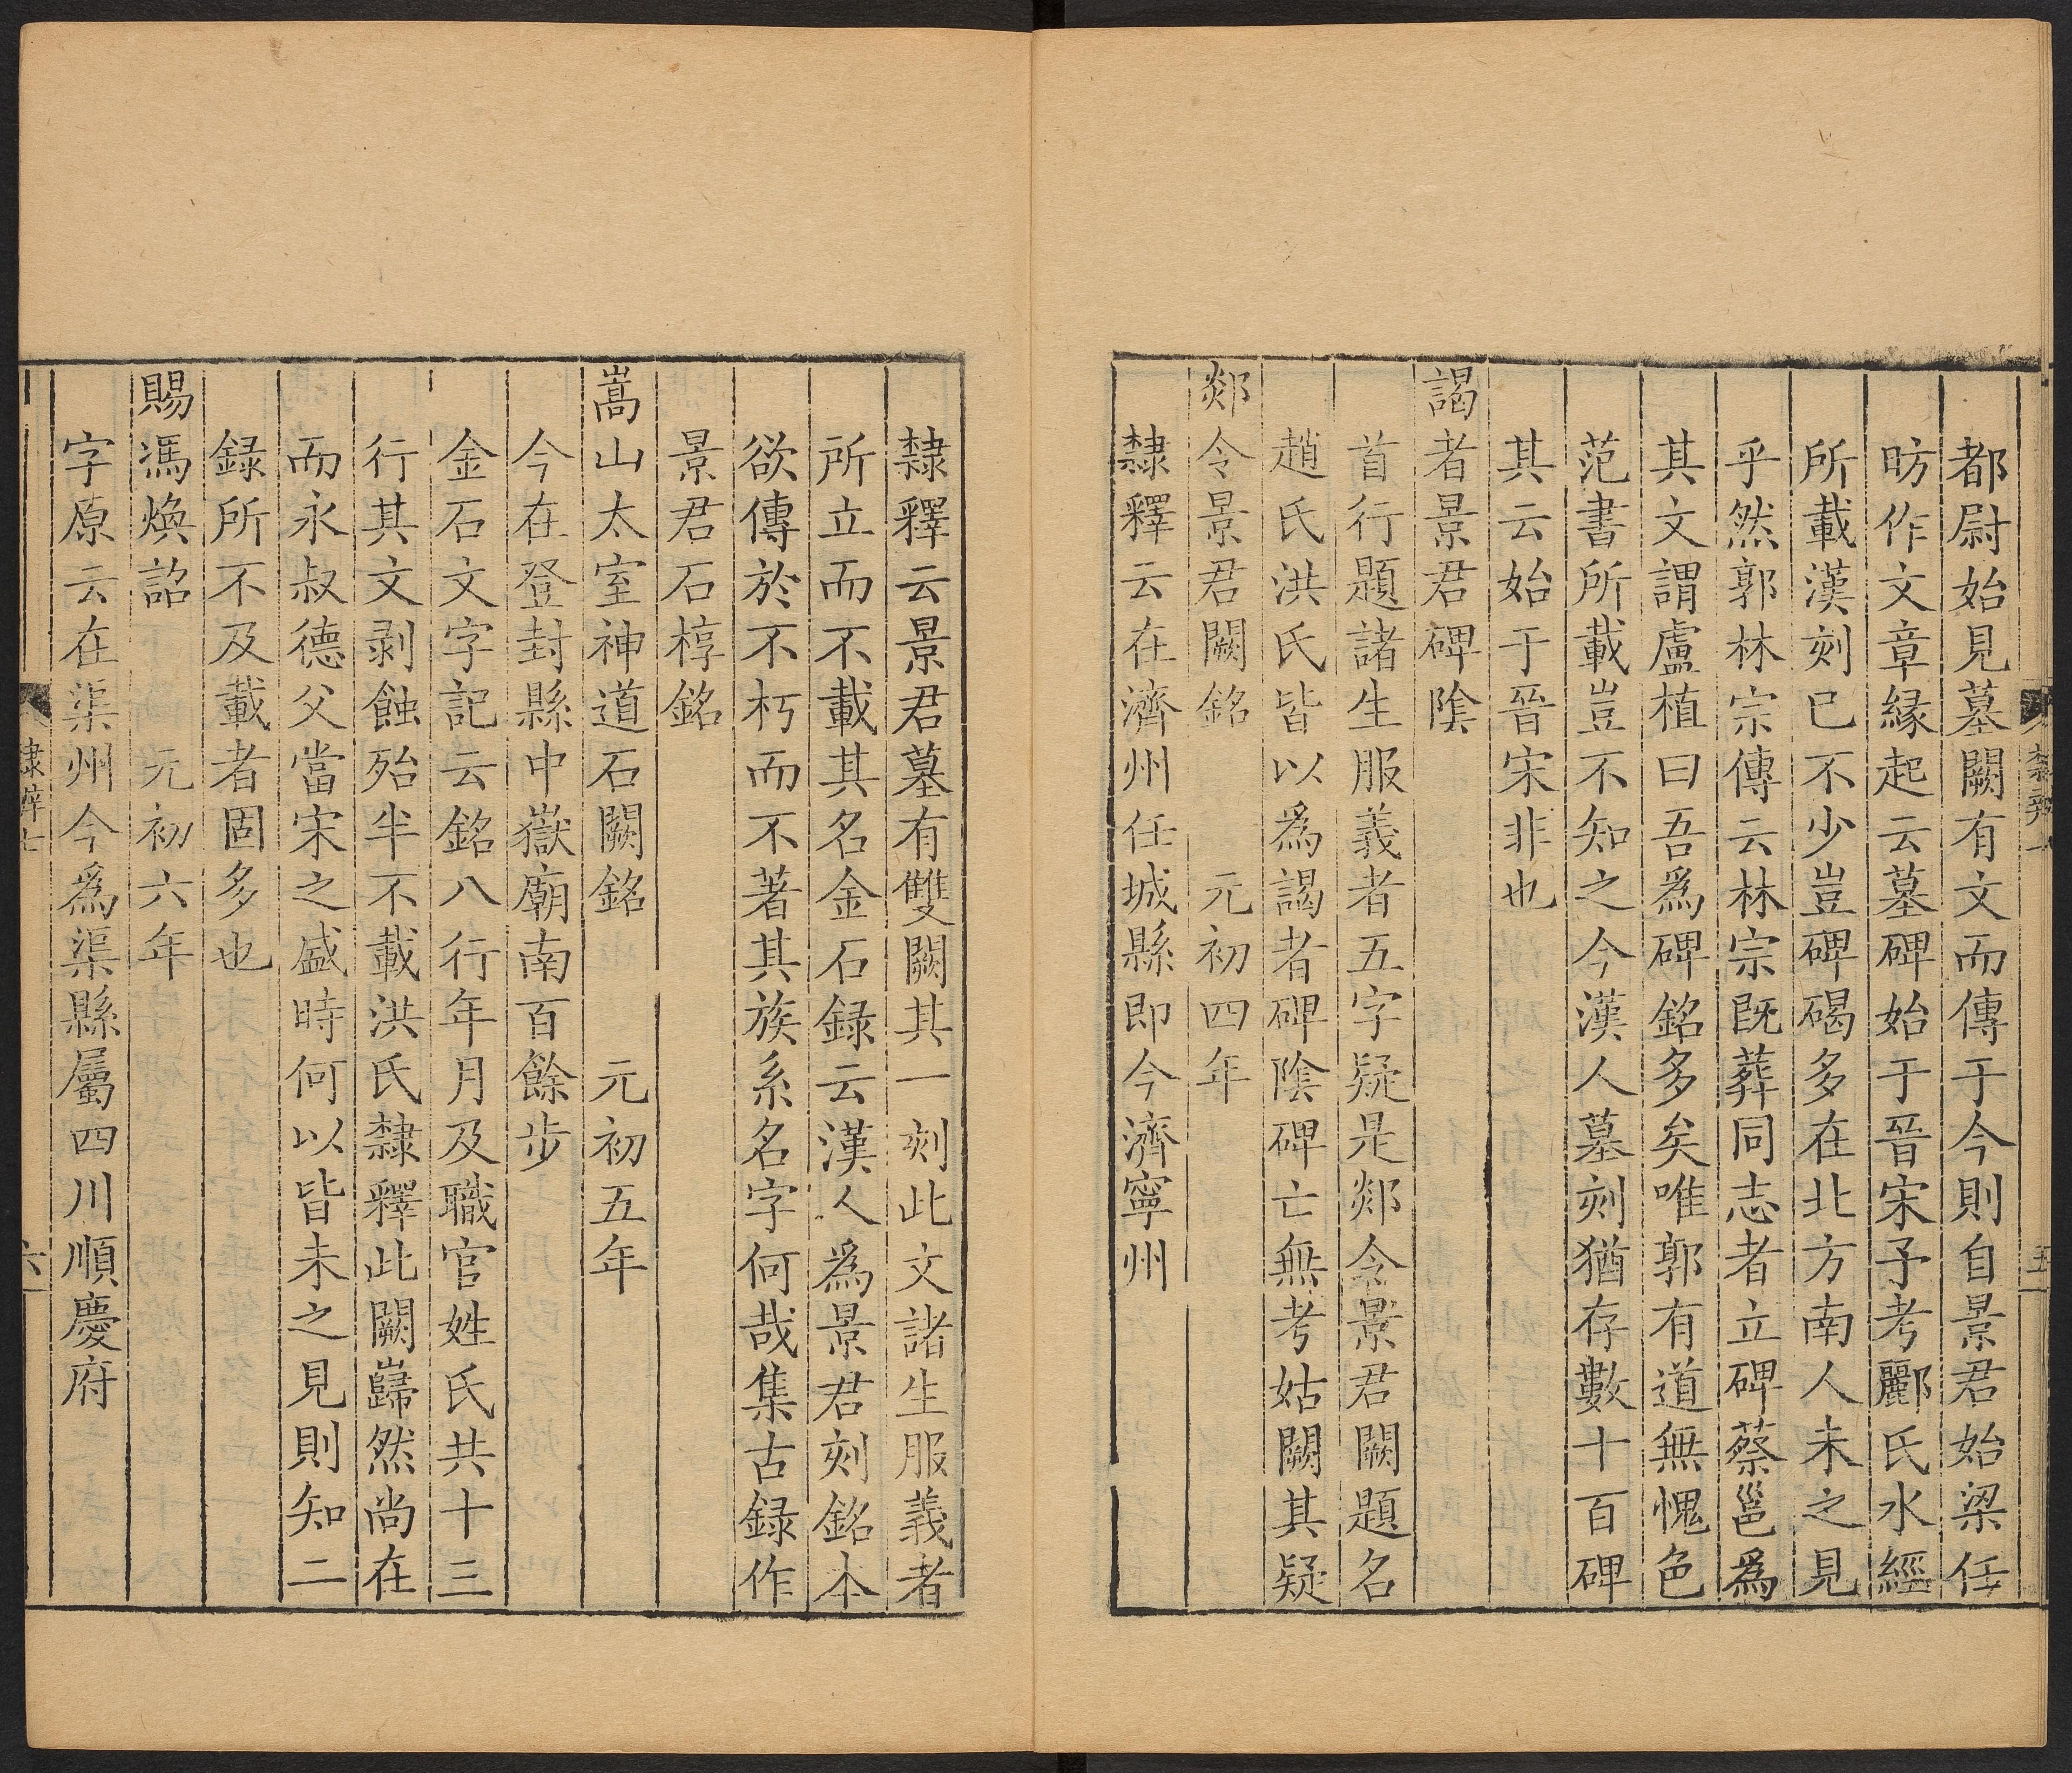 都尉始見墓闕有文而傳于今則自景君始梁任
昉作文章緣起云墓碑始于晉宋予考酈氏水經
所載漢刻已不少豈碑碣多在北方南人未之見
乎然郭林宗傳云林宗既葬同志者立碑蔡邕爲
其文謂盧植曰吾爲碑銘多矣唯郭有道無愧色
范書所載豈不知之今漢人墓刻猶存數十百碑
其云始于晉宋非也
謁者景君碑陰
首行題諸生服義者五字疑是郯令景君闕題名
趙氏洪氏皆以爲謁者碑陰碑亡無考姑闕其疑
郯令景君闕銘 元初四年
隸釋云在濟州任城縣即今濟寧州
隸釋云景君墓有雙闕其一刻此文諸生服義者
所立而不載其名金石録云漢人爲景君刻銘本
欲傳於不朽而不著其族系名字何哉集古録作
景君石椁銘
嵩山太室神道石闕銘 元初五年
今在登封縣中嶽廟南百餘步
金石文字記云銘八行年月及職官姓氏共十三
行其文剥蝕殆半不載洪氏隸釋此闕巋然尚在
而永叔德父當宋之盛時何以皆未之見則知二
録所不及載者固多也
賜馮煥詔 元初六年
字原云在渠州今爲渠縣屬四川順慶府
六